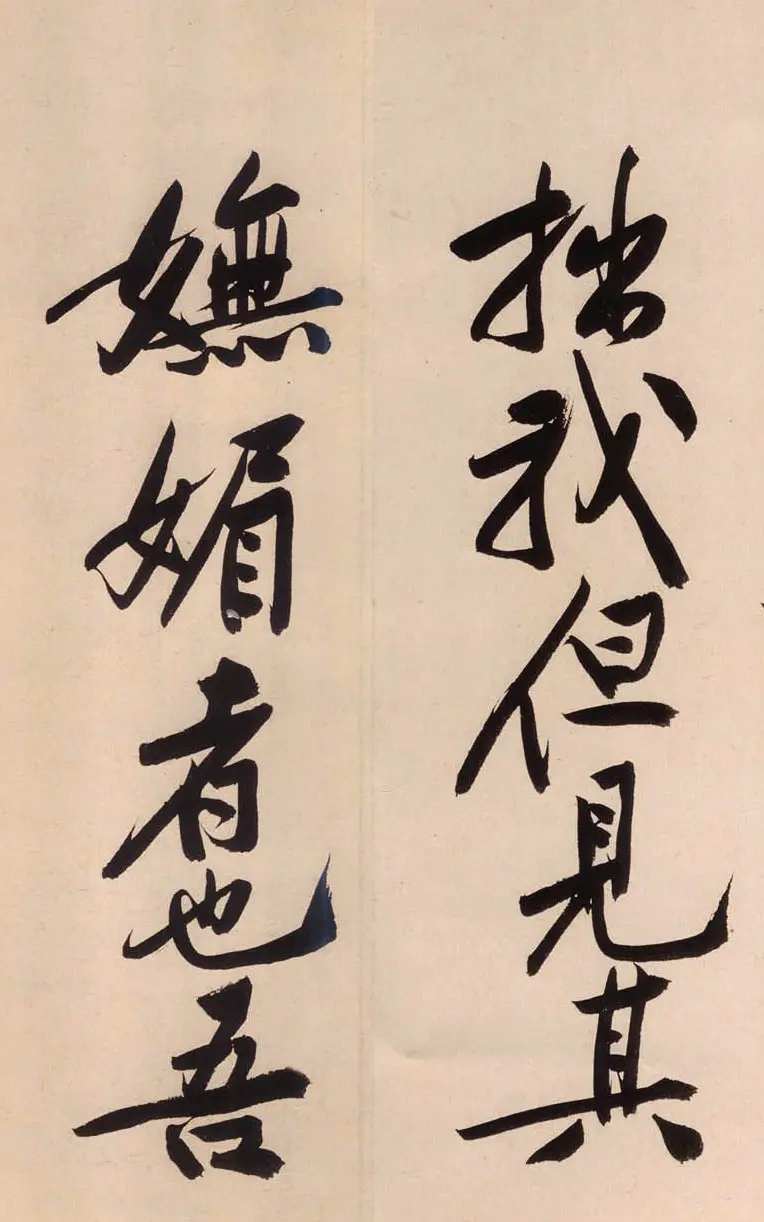 拙我但见其
嫵媚者也吾